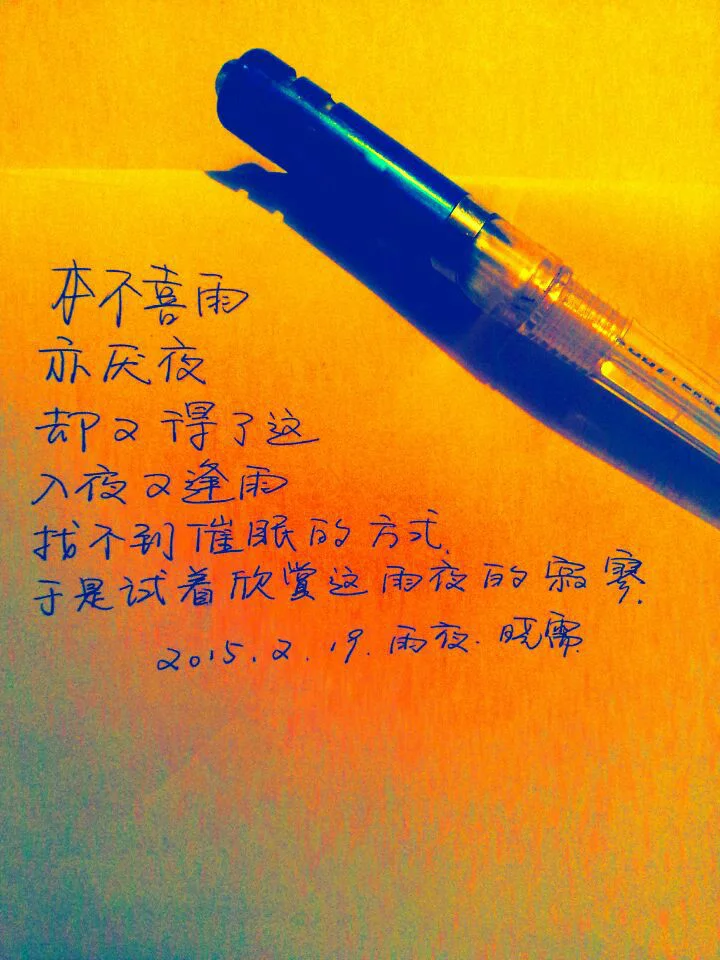 本不喜雨
亦厌夜
却又得了这
入夜又逢雨
找不到催眠的方式
于是试着欣赏这雨夜的寂寥.
2015.2.19.雨夜.晓儒